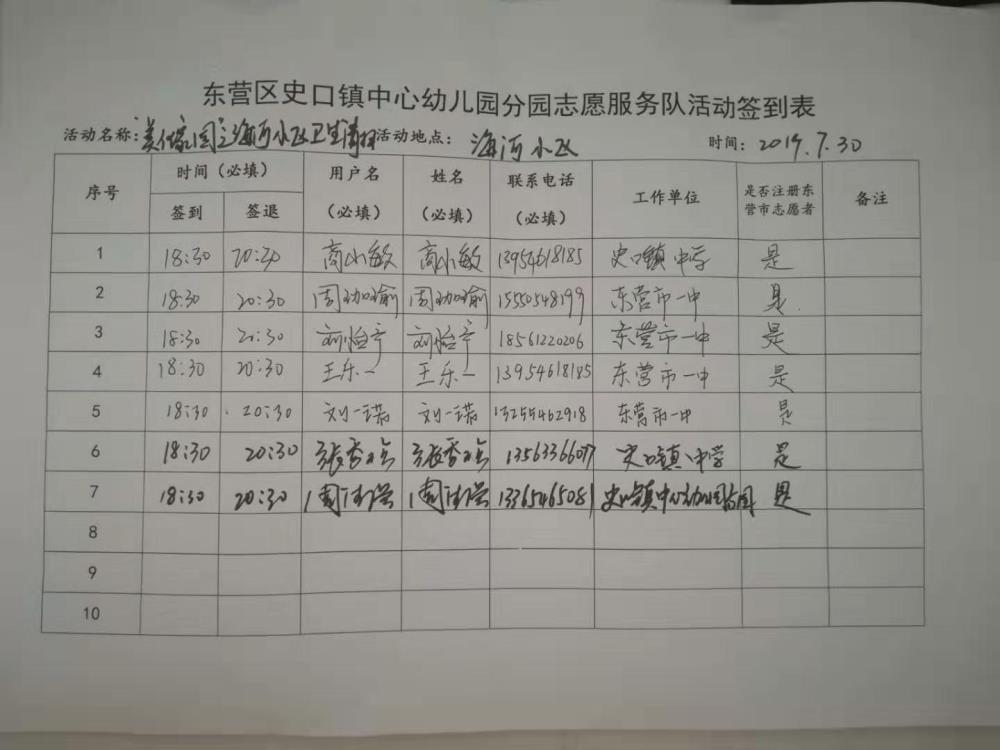 东营区史口镇中心幼儿园分园志愿服务队活动签到表
活动名称: 美化家园之海河小区卫生清扫 活动地点: 海河小区 时间: 2019.7.30
序号 时间（必填） 用户名（必填） 姓名（必填） 联系电话（必填） 工作单位 是否注册东营市志愿者 备注
签到 签退
1 18:30 20:30 商小敏 商小敏 13954618185 史口镇中学 是
2 18:30 20:30 周珈瑜 周珈瑜 15550548199 东营市一中 是
3 18:30 20:30 刘怡宁 刘怡宁 18561220206 东营市一中 是
4 18:30 20:30 王乐一 王乐一 13954618185 东营市一中 是
5 18:30 20:30 刘一诺 刘一诺 13255462918 东营市一中 是
6 18:30 20:30 张秀 张秀 13563366077 史口镇中学 是
7 18:30 20:30 周 周 13365465081 史口镇中心幼儿园分园 是
8
9
10